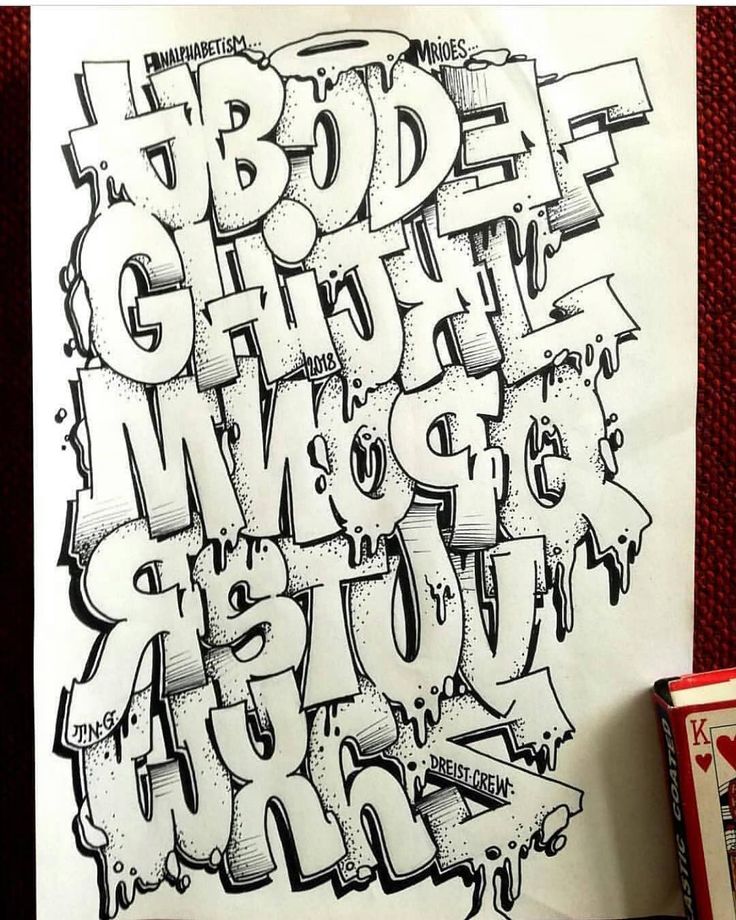 ANALPHABETISM... MRIOES...
ABCDEF
GHIJKL
2018
MNOPQ
RSTUV
T.N.G.
WXYZ
DREIST.CREW.
K
ASTIC COATED